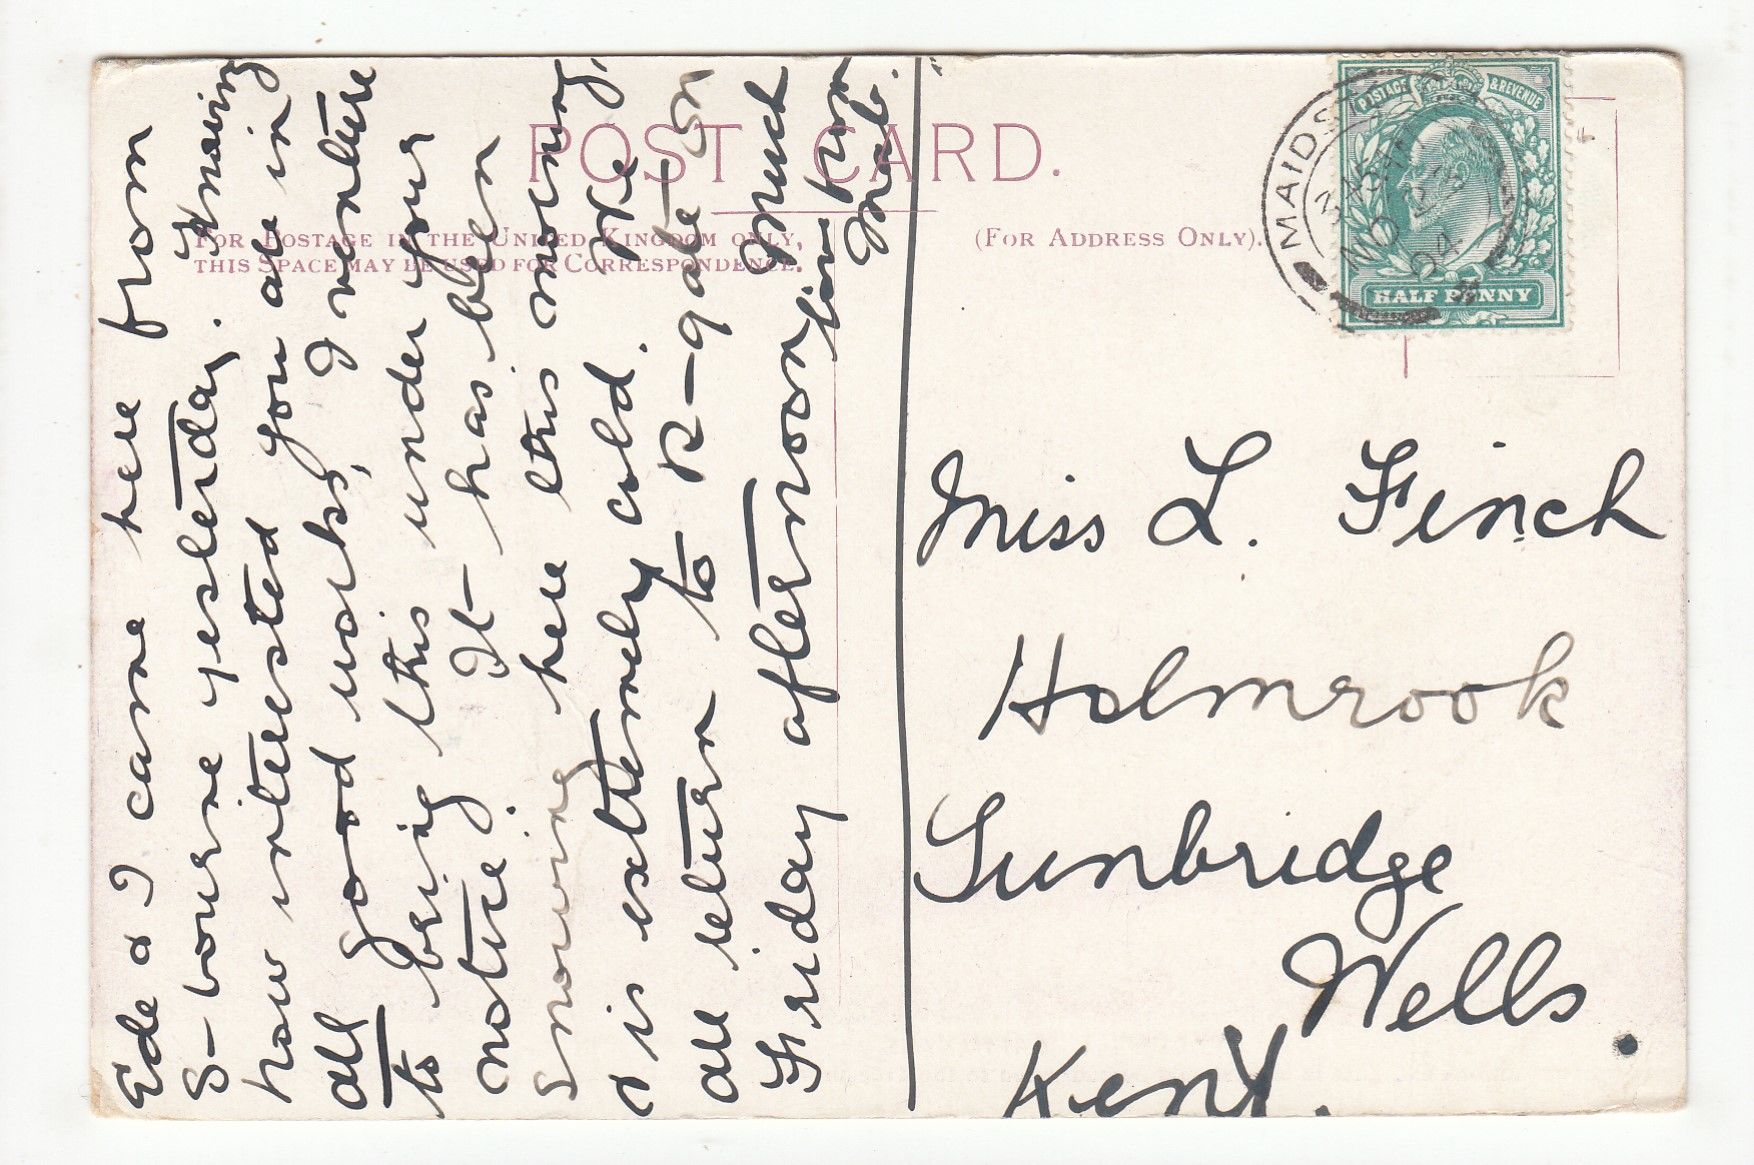 POST CARD.
FOR POSTAGE IN THE UNITED KINGDOM ONLY,
THIS SPACE MAY BE USED FOR CORRESPONDENCE.
(FOR ADDRESS ONLY).
POSTAGE & REVENUE
HALF PENNY
MAIDS
NO 23
04
Ede & I came here from
S-bourne yesterday. Knowing
how interested you are in
all good works, I venture
to bring this under your
notice. It has been
snowing here this morning,
& is extremely cold. We
all return to R-gate on
Friday afternoon. Much
love from
Mab.
Miss L. Finch
Holmrook
Tunbridge
Wells
Kent.